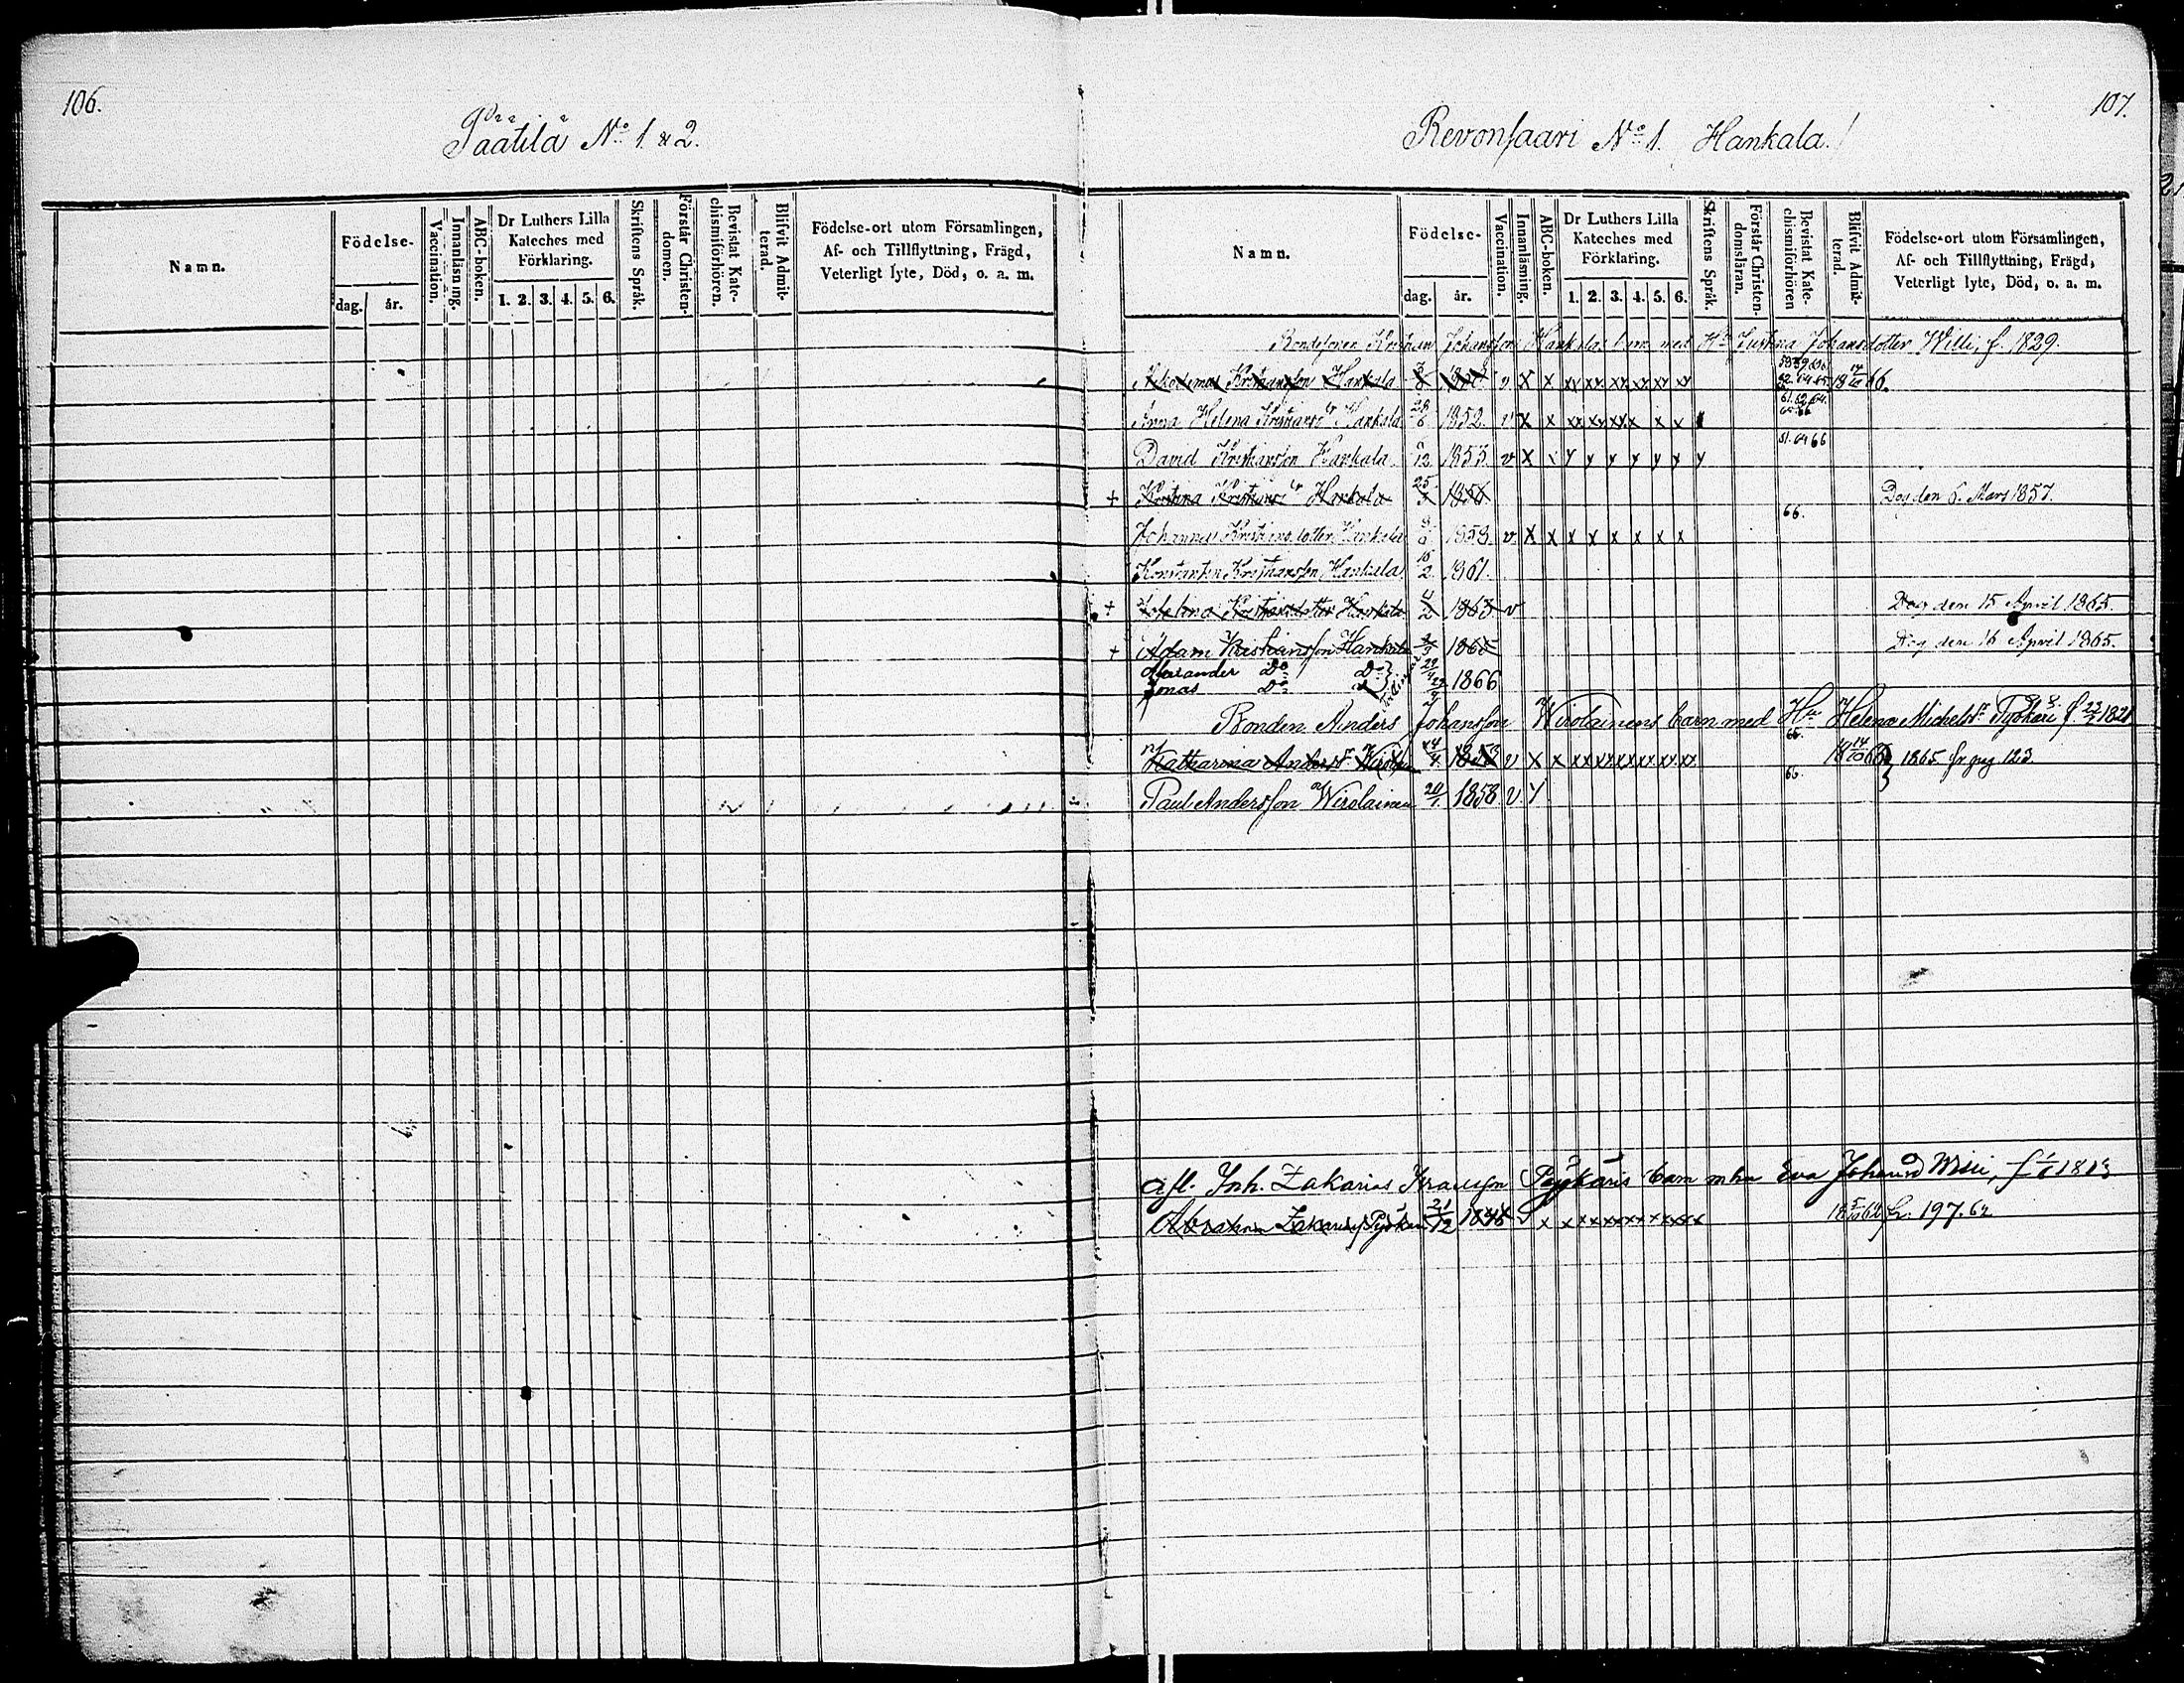 106.
Päätilä No 1 & 2.
Namn.
Födelse-
dag. år.
Vaccination.
Innanläsning.
ABC-boken.
Dr Luthers Lilla
Kateches med
Förklaring.
1. 2. 3. 4. 5. 6.
Skriftens Språk.
Förstår Christen-
domen.
Bevistat Kate-
chismiförhören.
Blifvit Admit-
terad.
Födelse-ort utom Församlingen,
Af- och Tillflyttning, Frägd,
Veterligt lyte, Död, o. a. m.
107.
Revonsaari No 1. Hankala.
Namn.
Födelse-
dag. år.
Vaccination.
Innanläsning.
ABC-boken.
Dr Luthers Lilla
Kateches med
Förklaring.
1. 2. 3. 4. 5. 6.
Skriftens Språk.
Förstår Christen-
domsläran.
Bevistat Kate-
chismiförhören
Blifvit Admit-
terad.
Födelse-ort utom Församlingen,
Af- och Tillflyttning, Frägd,
Veterligt lyte, Död, o. a. m.
Bondesonen Kristian Johansson Hankalas barn med Hu Justina Johansdotter Willi, f. 1829.
Kristiansson Hankala v x x xx xx xx xx xx xx 18 14/10 66.
Anna Helena Kristiansdr Hankala 28/6 1852. v x x xx xx xx x x x
David Kristiansson Hankala 1855. v x x y y y y y y y 51. 64 66
+ Kristina Kristiansdr Hankala 25 1856. Dog den 6. Mars 1857.
Johanna Kristiansdotter Hankala 1858. v x x x x x x x x 66.
Konstantin Kristiansson Hankala 16/2 1861.
+ Kristiansdotter Hankala 4/2 1863 v Dog den 15 April 1865.
+ Adam Kristiansson Hankala 1865 Dog den 16 April 1865.
Alexander Do Do 29
Jonas Do Do 29 1866
Bonden Anders Johansson Wirolainens barn med Hu Helena Michelsdr Pyökäri f. 22/7 1821
Katharina Andersdr Wirolain 24/4 1853 v x x xx xx xx xx xx xx 66. 18 14/10 66 } 1865 fr pag 123
Paul Andersson Wirolainen 20/1 1858 v y 66.
afl. Inh. Zakarias Israelsson Pyökäris barn m hu Eva Johansd Willi, f 1/6 1813
Abraham Zakariss Pyökäri 21/12 1848 v x x xx xx xx xx xx xx 18 5/10 64 fr. 197. 62